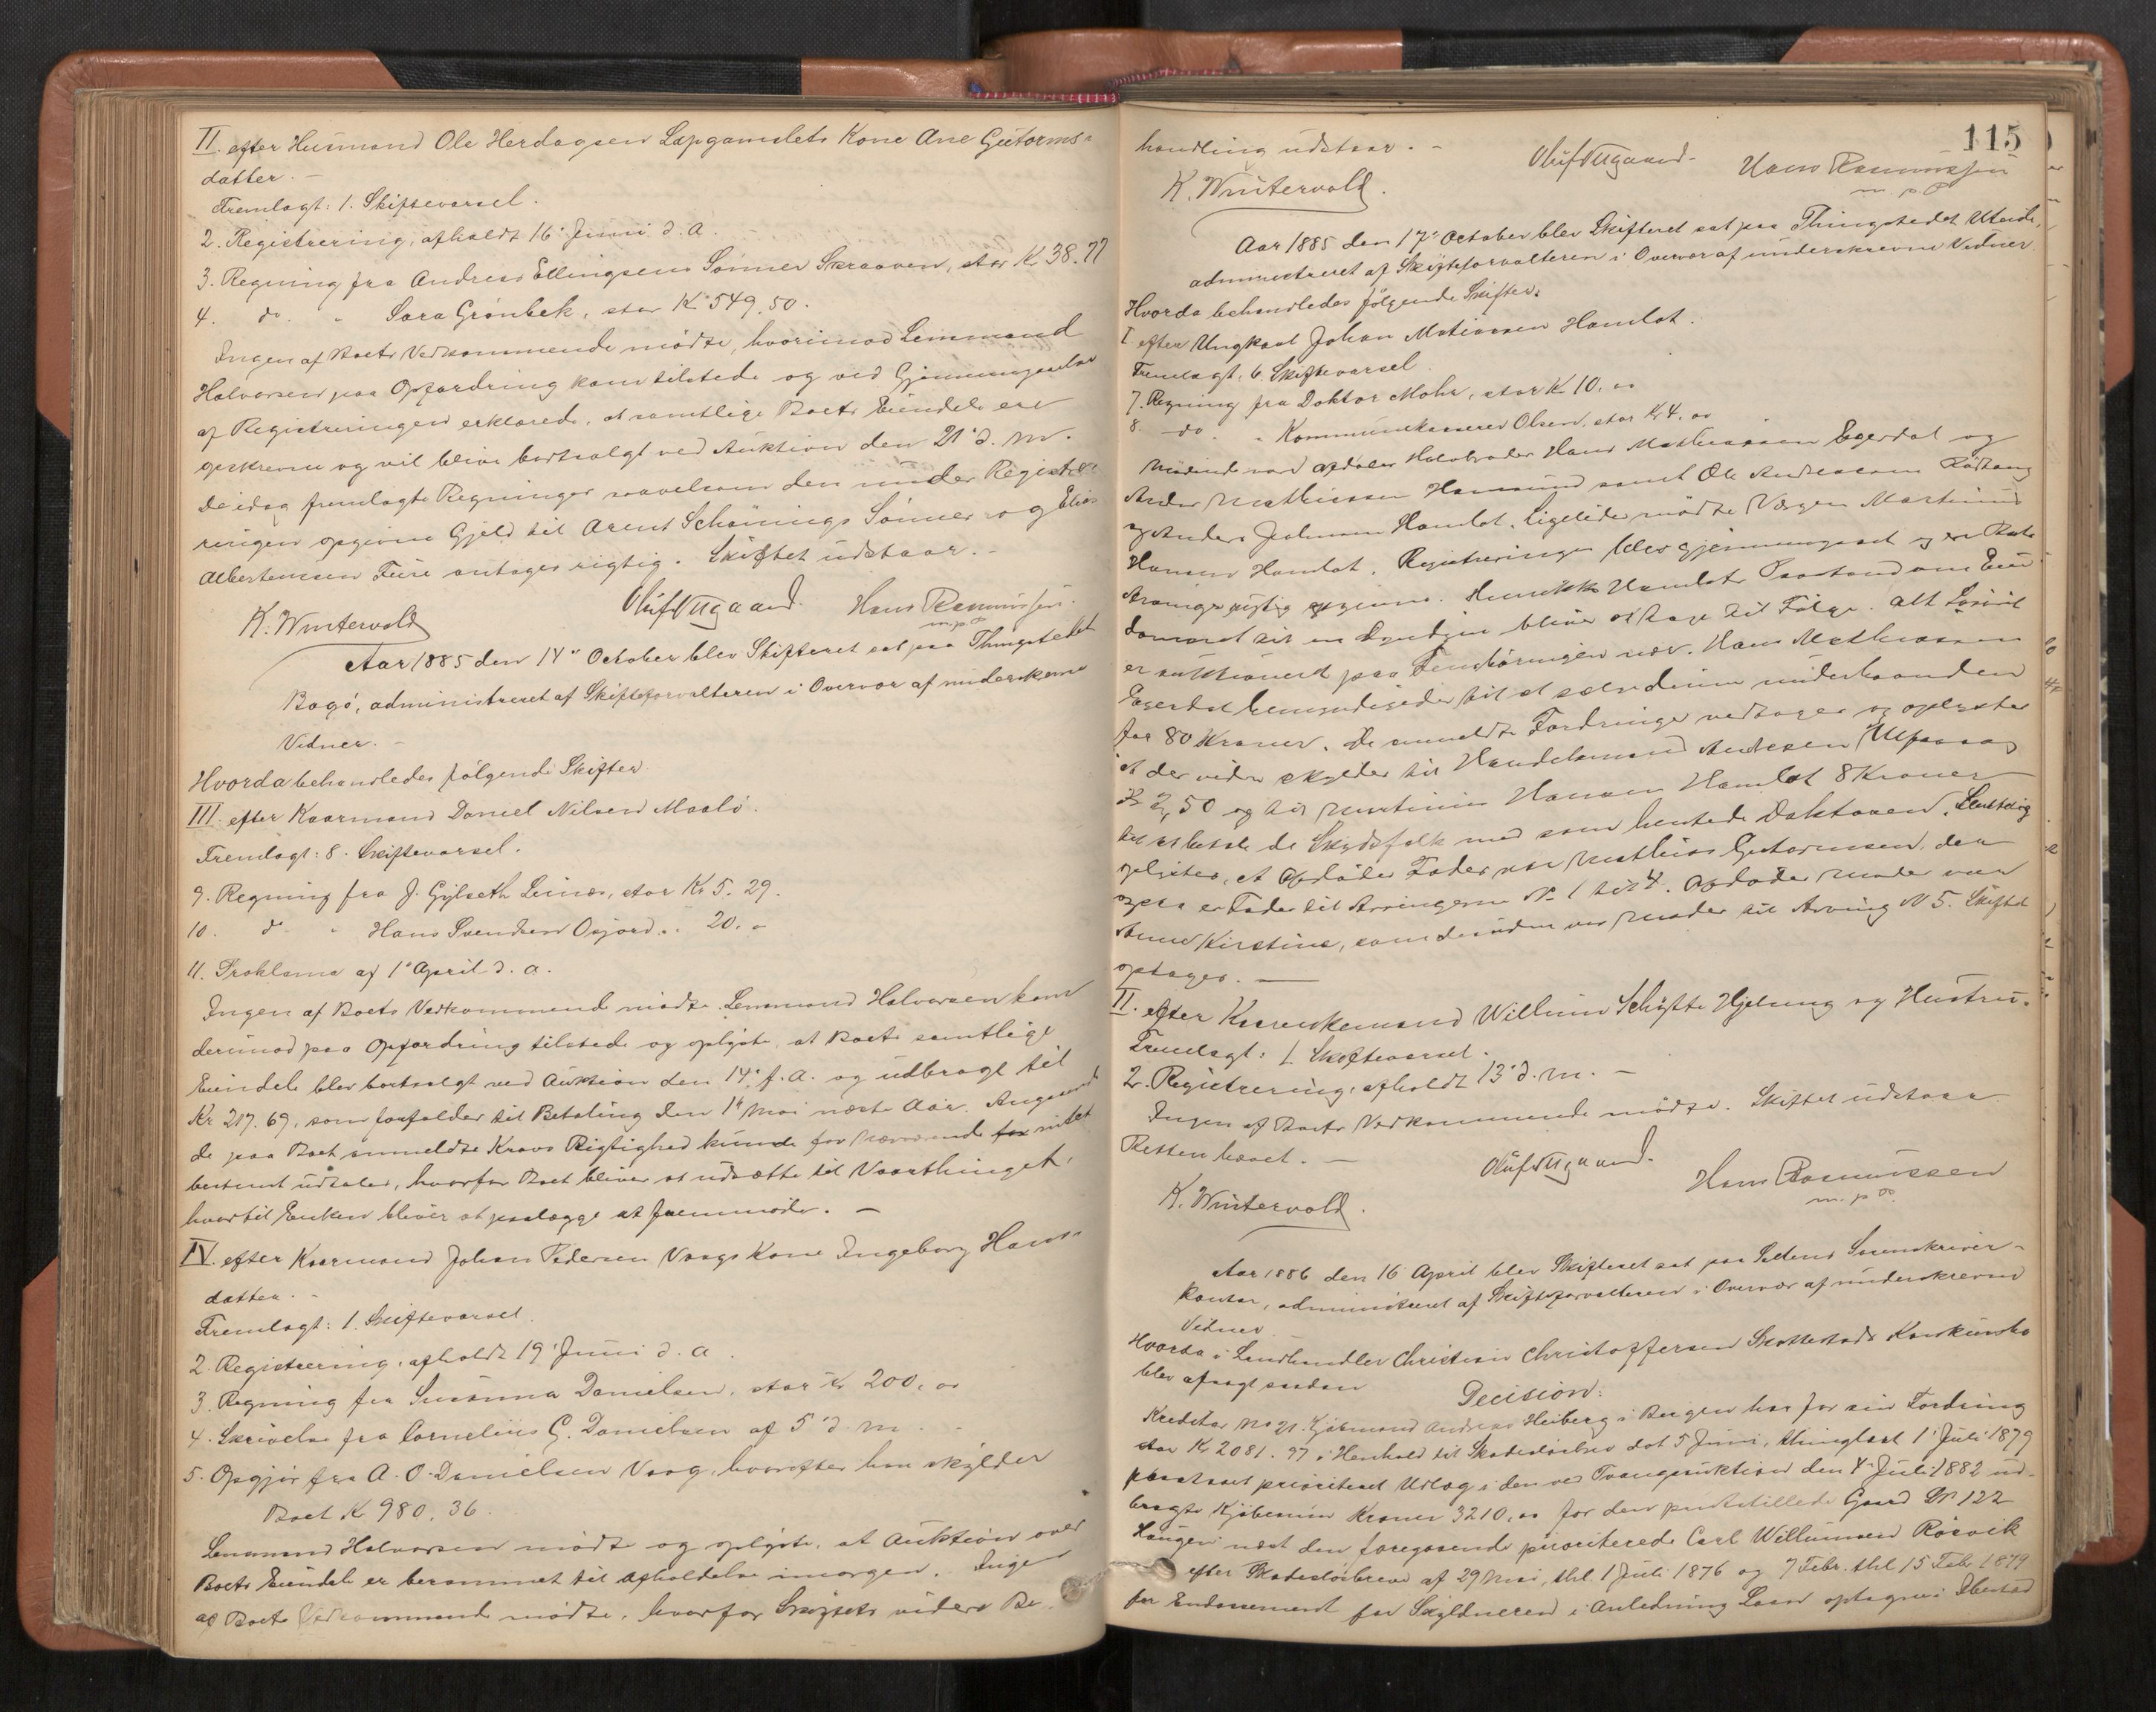 II. efter Husmand Ole Herdagsen Løpgamslets Kone Ane Gutorms-
datter. —
Fremlagt: 1. Skiftevarsel.
2. Registrering, afholdt 16' Juni d. a.
3. Regning fra Andreas Ellingsens Sønner Skraaven, stor Kr 38.77
4. do. " Sara Grønbek, stor Kr 549.50.
Ingen af Boets Vedkommende mødte, hvorimod Lensmand
Halvorsen paa Opfordring kom tilstede og ved Gjennemgaaelse
af Registreringen erklærede, at samtlige Boets Eiendele ere
opskrevne og vil blive bortsolgt ved Auktion den 21' d. M.
De idag fremlagte Regninger saavelsom den under Registre-
ringen opgivne Gjeld til Arent Schønings Sønner og Elias
Albertsensen antages rigtig. Skiftet udstaar. —
K. Wintervold Oluf Aagaard. Hans Rasmussen.
m. p. P.
Aar 1885 den 14' October blev Skifteret sat paa Thingstedet
Bogø, administreret af Skifteforvalteren i Overvær af underskrevne
Vidner. —
Hvorda behandledes følgende Skifter
III. efter Kaarmand Daniel Nilsen Maalø.
Fremlagt: 8. Skiftevarsel.
9. Regning fra J. Gylseth Leines, stor Kr 5. 29.
10. d° " Hans Svendsen Osjord .. 20. "
11. Proklama af 1' April d. a.
Ingen af Boets Vedkommende mødte. Lensmand Halvorsen kom
derimod paa Opfordring tilstede og oplyste, at Boets samtlige
Eiendele blev bortsolgt ved Auktion den 14' f. a. og udbragt til
Kr 217. 69, som forfalder til Betaling den 1' Mai næste Aar. Angaaende
de paa Boet anmeldte Kravs Rigtighed kunde for Nærværende intet
bestemt udtales, hvorfor Boet bliver at udsætte til Vaarthinget,
hvortil Enken bliver at paalægge at fremmøde. —
IV. efter Kaarmand Johan Pedersen Vaags Kone Ingeborg Hans-
datter. —
Fremlagt: 1. Skiftevarsel.
2. Registrering, afholdt 19' Juni d. a.
3. Regning fra Susanna Danielsen, stor Kr 200, 00
4. Skrivelse fra Cornelius C. Danielsen af 5' d. M.
5. Opgjør fra A. O. Danielsen Vaag, hvorefter han skylder
Boet Kr 980, 36.
Lensmand Halvorsen mødte og oplyste, at Auktion over
Boets Eiendele er berammet til Afholdelse imorgen. Ingen
af Boets Vedkommende mødte, hvorfor Skiftets videre Be-
115
handling udstaar. —
K. Wintervold. Oluf Aagaard. Hans Rasmussen
m. p. P.
Aar 1885 den 17' October blev Skifteret sat paa Thingstedet
administreret af Skifteforvalteren i Overvær af underskrevne Vidner
Hvorda behandledes følgende Skifter:
I. efter Ungkarl Johan Matiassen Hamlot.
Fremlagt: 6. Skiftevarsel.
7. Regning fra Doktor Mohr, stor Kr 10. 00
8. do. " Kommunekasserer Olsen, stor Kr 4. 00
Mødende var afdødes Halvbroder Hans Mathiassen Egerdal og
Anders Mathiassen Hamsund samt Ole Andreassen
og Anders Johansen Hamlot. Ligeledes mødte Værgen Martinus
Hansen Hamlot. Registreringen blev gjennemgaaet og er Boets
Arvinger rigtig opgivne. Henrikke Hamlots Paastand om Eien-
domsret til en bliver at tage til Følge. Alt Løsøret
er auktioneret paa Fembøringen nær. Hans Mathiassen
Egerdal bemyndigedes til at sælge denne underhaanden
for 80 Kroner. De anmeldte Fordringer vedtages og oplystes
at der videre skyldes til Handelsmand Andersen Ulfsvaag
Kr 2,50 og til Martinus Hansen Hamlot 8 Kroner
til at betale de Skydsfolk med som hentede Doktoren. Samtidig
oplystes, at Afdødes Fader var Mathias Gutormsen, der
ogsaa er Fader til Arvingerne N° 1 til 4. Afdødes Moder var
Anne Kirstine, som desuden var Moder til Arving N 5. Skiftet
optages. —
II. efter Kaarenkemand Willum Schytte Hjelung og Hustru.
Fremlagt: 1. Skiftevarsel.
2. Registrering, afholdt 13' d. M. —
Ingen af Boets Vedkommende mødte. Skiftet udstaar
Retten hævet. —
K. Wintervold. Oluf Aagaard. Hans Rasmussen
m. p. P.
Aar 1886 den 16 April blev Skifteret sat paa Stedens Sorenskriver-
kontor, administreret af Skifteforvalteren i Overvær af underskrevne
Vidner
Hvorda i Landhandler Christian Christoffersen Skottestads Konkursbo
blev afsagt saadan
Decision:
Kreditor No 21. Kjøbmand Andreas Heiberg i Bergen har for sin Fordring
stor Kr 2081. 97 i Henhold til Skadesløsbrev dat 5 Juni, thinglæst 1' Juli 1879
paastaaet prioriteret Udlæg i den ved Tvangsauktion den 4' Juli 1882 ud-
bragte Kjøbesum Kroner 3210, 00 for den pantstillede Gaard Br 122
Haugen næst den foregaaende prioriterede Carl Willumsen Røsvik
efter Skadesløsbreve af 29 Mai, thl. 1 Juli 1876 og 7 Febr. thl 15 Feb. 1879
for Endossement for Skyldneren i Anledning Laan optagne i Ibestad